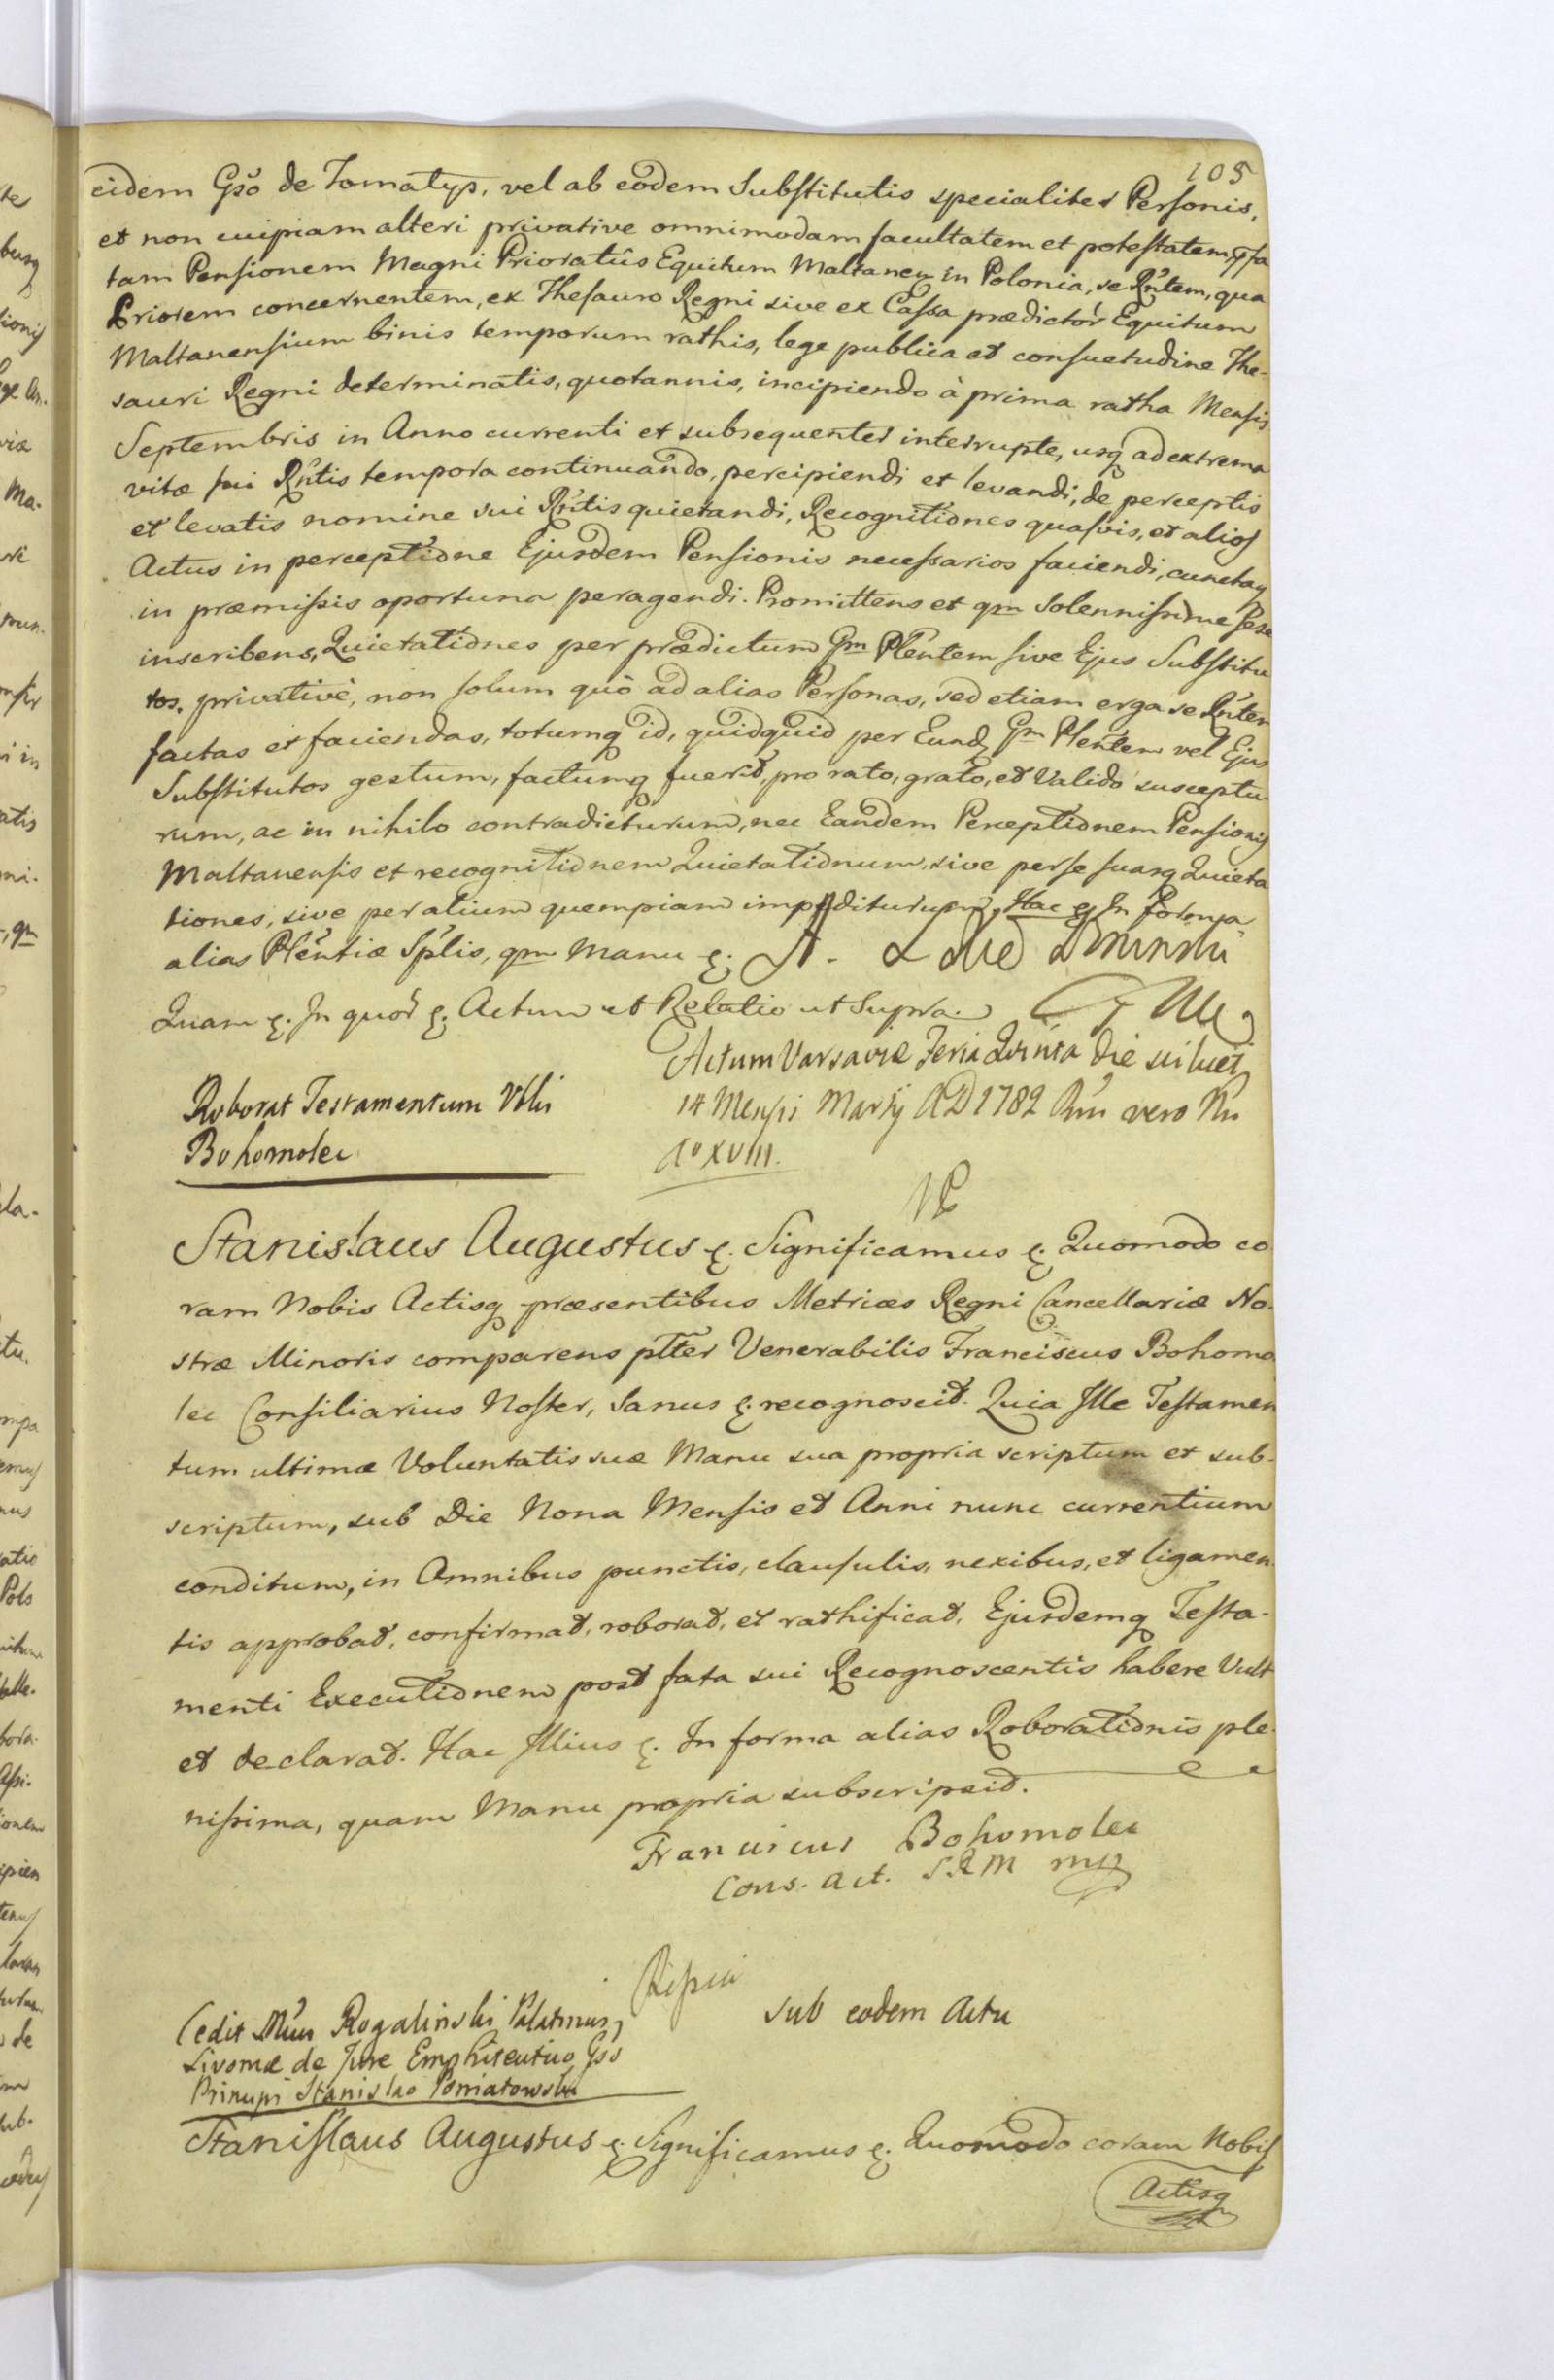 105
eidem Gso de Tomatys, vel ab eodem Substitutis specialiter Personis,
et non cuipiam alteri privative omnimodam facultatem et potestatem
tam Pensionem Magni Prioratûs Equitum Maltaneq in Polonia, se Rntem, qua
Priorem concernentem, ex Thesauro Regni sive ex Cassa prædictor Equitum
Maltanensium binis temporum rathis, lege publica et consuetudine The-
sauri Regni determinatis, quotannis, incipiendo à prima ratha Mensis
Septembris in Anno currenti et subsequenter interrupte, usq ad extrema
vitæ sui Rntis tempora continuando, percipiendi et levandi, de perceptis
et levatis nomine sui Rntis quietandi, Recognitiones quasvis, et alios
Actus in perceptione Ejusdem Pensionis necessarios faciendi, cunctaq
in præmissis oportuna peragendi. Promittens et qm Solennissime sese
inscribens, Quietationes per prædictum Gm Plentem sive Ejus Substitu
tos, privativè, non solum quò ad alias Personas, sed etiam erga se Rntem
factas et faciendas, totumq id, quidquid per Eund Gm Plentem vel Ejus
Substitutos gestum, factumq fuerit, pro rato, grato, et Valido susceptu-
rum, ac in nihilo contradicturum, nec Eandem Perceptionem Pensionis
Maltanensis et recognitionem Quietationum, sive per se suasq Quieta
tiones, sive per alium quempiam impediturum, Hac In Forma
alias Plentiæ Splis, qm Manu
Quam In quor Actum et Relatio ut Supra.
Actum Varsaviæ Feria Quinta die scilicet
14 Mensis Martij AD 1782 Rni vero Nri
Ao XVIII.
Roborat Testamentum Vblis
Bohomolec
Stanislaus Augustus Significamus Quomodo co
ram Nobis Actisq præsentibus Metrices Regni Cancellariæ No-
stræ Minoris comparens plter Venerabilis Franciscus Bohomo
lec Consiliarius Noster, Sanus recognoscit. Quia Ille Testamen
tum ultimæ Voluntatis suæ Manu sua propria scriptum et sub-
scriptum, sub Die Nona Mensis et Anni nunc currentium
conditum, in Omnibus punctis, clausulis, nexibus, et ligamen
tis approbat, confirmat, roborat, et rathificat, Ejusdemq Testa-
menti Executionem post fata sui Recognoscentis habere Vult
et declarat. Hac Illius In forma alias Roborationis ple-
nissima, quam Manu propria subscripsit.
Franciscus Bohomolec
Cons. Act. S.R.M mp
Cedit Mcus Rogalinski Palatinus
Livoniæ de Jure Emphiteutico Gso
Principi Stanislao Poniatowski
Sub eodem Actu
Stanislaus Augustus Significamus Quomodo coram Nobis
Actisq